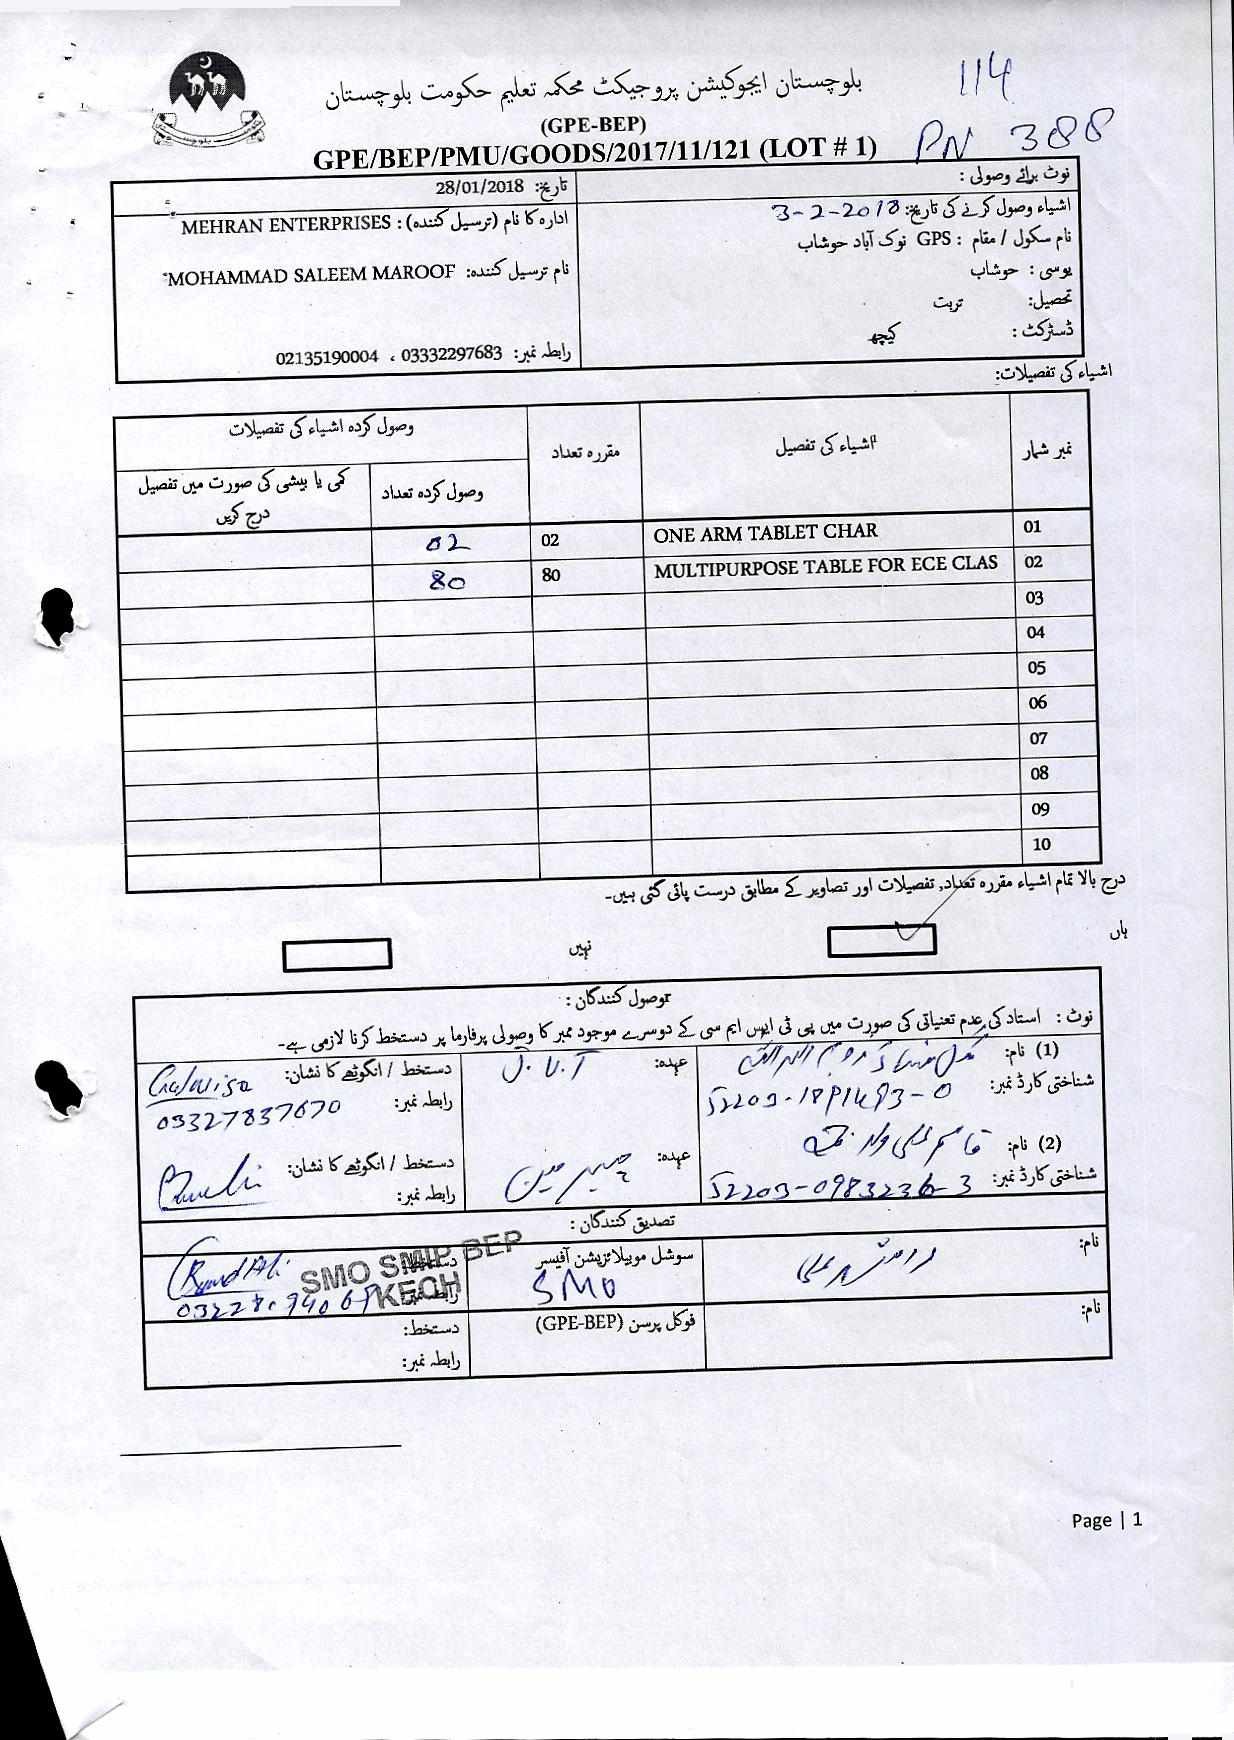 114
بلوچستان ایجوکیشن پروجیکٹ محکمہ تعلیم حکومت بلوچستان
(GPE-BEP)
GPE/BEP/PMU/GOODS/2017/11/121 (LOT # 1)
PN 388
نوٹ برائے وصولی :
تاریخ: 28/01/2018
اشیاء وصول کرنے کی تاریخ: 3-2-2018
ادارہ کا نام (ترسیل کنندہ) : MEHRAN ENTERPRISES
نام سکول / مقام : GPS نوک آباد حوشاب
یوسی : حوشاب
نام ترسیل کنندہ: MOHAMMAD SALEEM MAROOF
تحصیل: تربت
ڈسٹرکٹ : کیچھ
رابطہ نمبر: 03332297683 ، 02135190004
اشیاء کی تفصیلات:
نمبر شمار اشیاء کی تفصیل مقررہ تعداد وصول کردہ اشیاء کی تفصیلات
وصول کردہ تعداد کمی یا بیشی کی صورت میں تفصیل درج کریں
01 ONE ARM TABLET CHAR 02 02
02 MULTIPURPOSE TABLE FOR ECE CLAS 80 80
03
04
05
06
07
08
09
10
درج بالا تمام اشیاء مقررہ تعداد, تفصیلات اور تصاویر کے مطابق درست پائی گئی ہیں۔
ہاں نہیں
وصول کنندگان :
نوٹ : استاد کی عدم تعنیاتی کی صورت میں پی ٹی ایس ایم سی کے دوسرے موجود ممبر کا وصولی پرفارما پر دستخط کرنا لازمی ہے۔
(1) نام: عہدہ: J.V.T دستخط / انگوٹھے کا نشان:
شناختی کارڈ نمبر: رابطہ نمبر: 03327837670
(2) نام: قاسم علی ولد عہدہ: چیئرمین دستخط / انگوٹھے کا نشان:
شناختی کارڈ نمبر: 52203-0983236-3 رابطہ نمبر:
تصدیق کنندگان :
نام: سوشل موبیلائزیشن آفیسر دستخط:
SMO رابطہ نمبر:
SMO SMIP BEP
KECH
نام: فوکل پرسن (GPE-BEP) دستخط:
رابطہ نمبر:
Page | 1